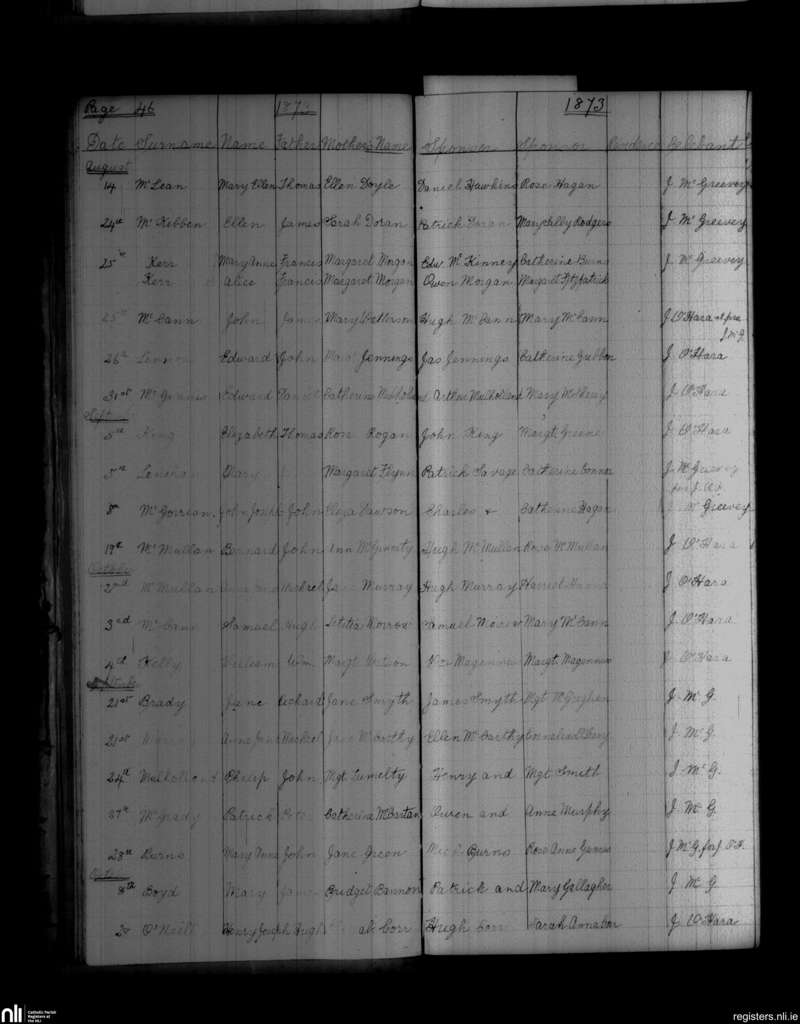 Page 46 187 1873
Date Surname Name Father Mother's Name Sponsor Sponsor Celebant
August
14 McLean Mary Ellen Thomas Ellen Doyle Daniel Hawkins Rose Hagan J McGreevey
24th McKibben Ellen James Sarah Doran Patrick Doran Mary Rodgers J McGreevey
25th Kerr Mary Anne Francis Margaret Morgan Edw. McKinney Catherine Burns J McGreevey
Kerr Alice Francis Margaret Morgan Owen Morgan Margaret Fitzpatrick
25th McCann John James Mary Patterson Hugh McCann Mary McCann J O'Hara
J McG.
26th Lennon Edward John Jennings Jas Jennings Catherine Gribbon J O'Hara
31st Edward Daniel Catherine Mulholland Arthur Mulholland Mary J O'Hara
Sept
5th King Elizabeth Thomas Rose Rogan John King Margt Greene J O'Hara
5th Lenehan Mary Margaret Flynn Patrick Savage Catherine Connor J McGreevey
for J. O'H.
8th McGorrian John Joseph John Eliza Lawson Charles & Catherine Hagan J McGreevey
19th McMullan Bernard John Ann McGinnity Hugh McMullan Rose McMullan J O'Hara
October
2nd McMullan Michael Murray Hugh Murray Harriet J O'Hara
3rd McCann Samuel Hugh Letitia Morrow Samuel Mary McCann J O'Hara
4th Kelly William Wm Margt Watson Magennis Margt. Magennis J O'Hara
Sept
21st Brady Jane Richard Jane Smyth James Smyth Mgt J. McG.
21st Murray Anne Jane Michael Jane McCarthy Ellen McCarthy Cornelius O'Leary J. McG.
24th Mulholland Philip John Mgt Lumelty Henry and Mgt Smith J. McG.
27th McGrady Patrick Peter Catherine McCartan Owen and Anne Murphy J. McG.
28th Burns Mary Anne John Jane Green Mich Burns Rose Anne J McG for J. O'H.
Oct
8th Boyd Mary James Bridget Bannon Patrick and Mary Gallagher J. McG.
20 O'Neill Henry Joseph Hugh Corr Hugh Corr Sarah Anna Corr J O'Hara
nli Catholic Parish
Registers at
the NLI
registers.nli.ie